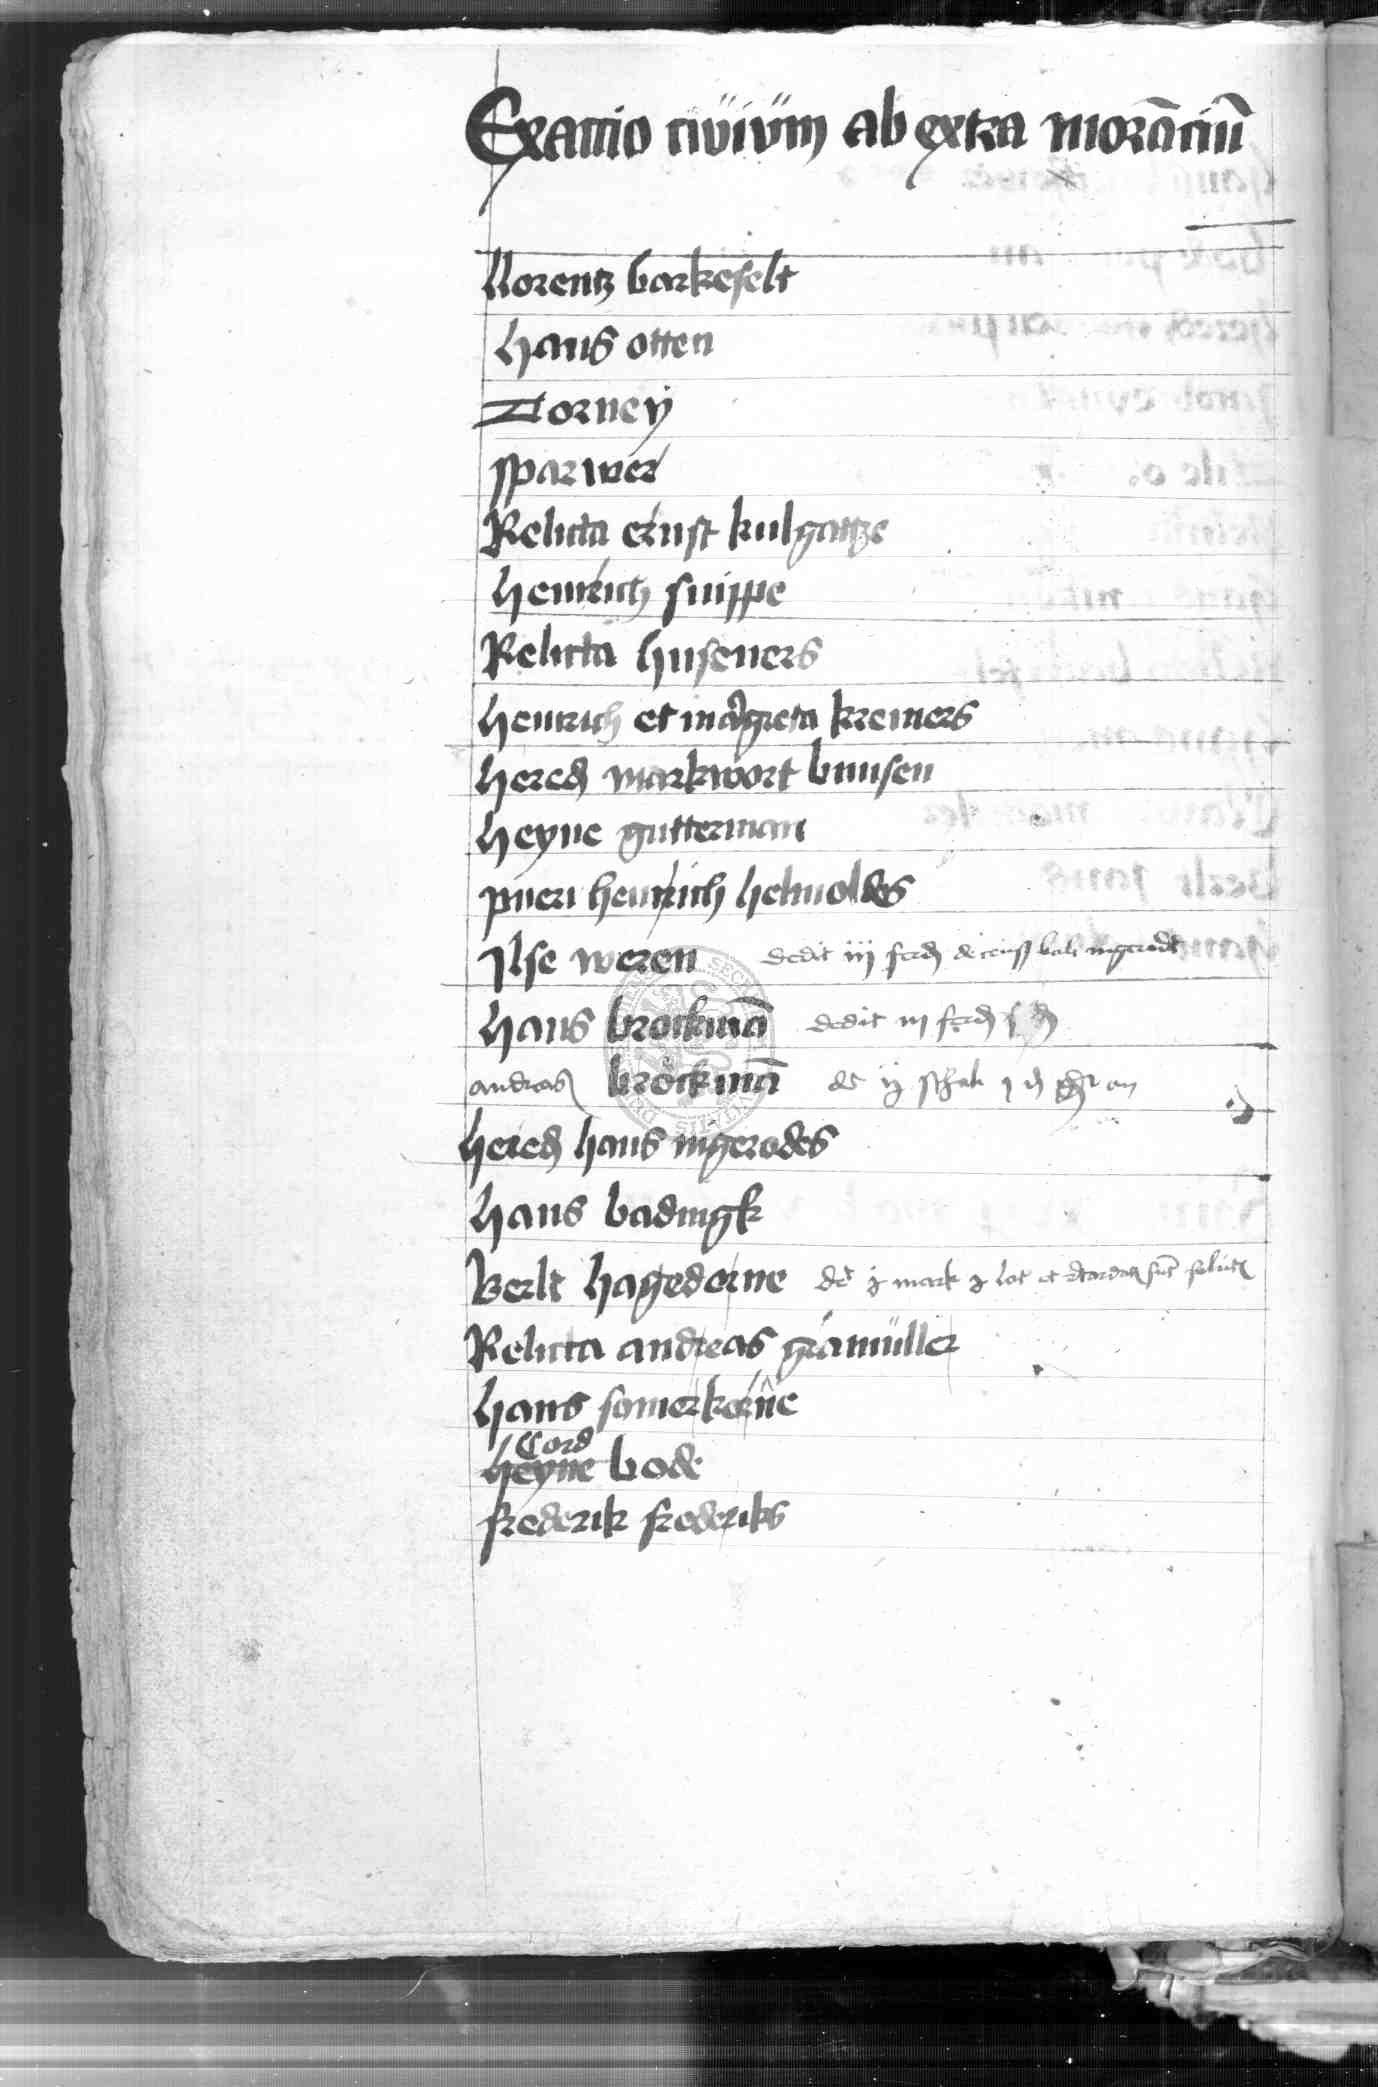 Exactio civium ab extra morāciū
Lorentz barkefelt
hans otten
Dorneÿ
sparwer
Relicta ernst kulgattze
heinrich snippe
Relicta huseners
heinrich et margreta kremers
hered markwort bunsen
heyne gutterman
pueri heinrich helmoldes
Ilse weren dedit iij ferd de censu ingerodt
hans brockmā dedit iij ferd
andreas brockmā dt
hered hans ingerodes
hans badingk
Berlt hagedorne dt j mark j lot et
Relicta andreas gramüller
hans somerkorne
Cord
heyne bode
frederik frederiks